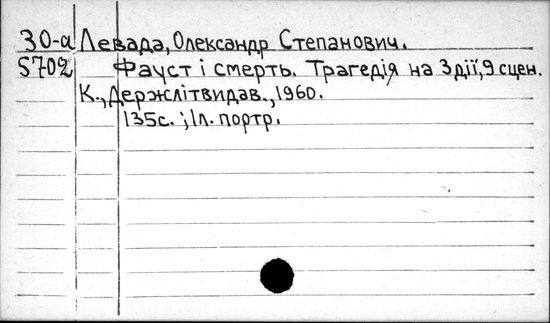 30-а Левада, Олександр Степанович.
5702 Фауст і смерть. Трагедія на 3 дії, 9 сцен.
К., Держлітвидав., 1960.
135с.; 1л. портр.